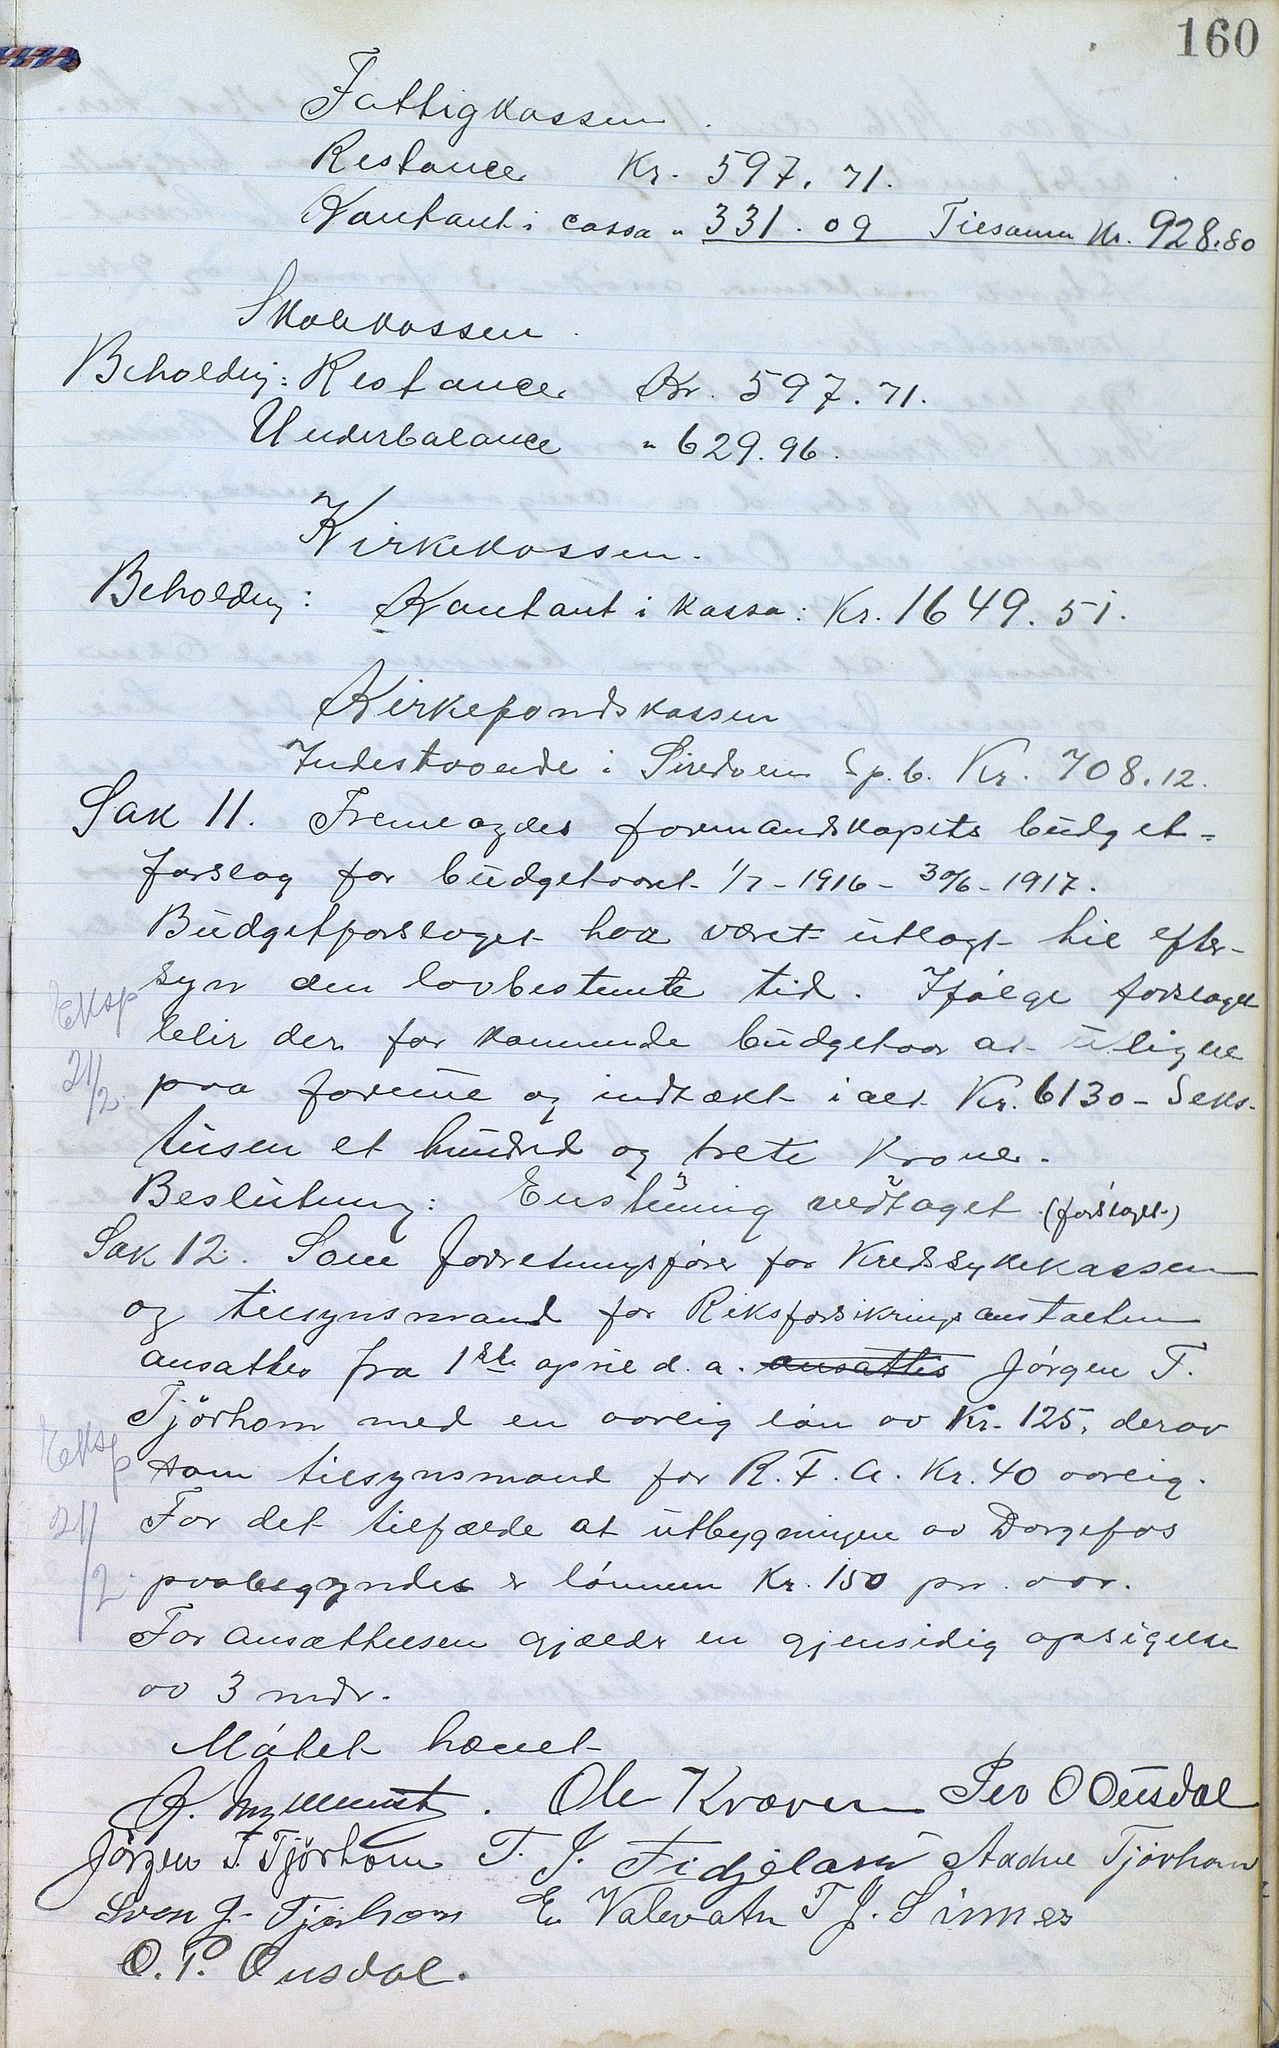 160
Fattigkassen.
Restancer Kr. 597.71.
Kontant i cassa " 331.09 Tilsamen Kr. 928.80
Skolekassen.
Beholdning: Restancer Kr. 597.71.
Underbalance " 629.96.
Kirkekassen.
Beholdning: Kontant i kassa: Kr. 1649.51.
Kirkefondskassen
Indestaaende i Siredalens Sp.b. Kr. 708.12.
Sak 11. Fremlagdes formandskapets budget-
forslag for budgetaaret 1/7-1916 - 30/6-1917.
Budgetforslaget har været utlagt til efter-
syn den lovbestemte tid. Ifølge forslaget
blir der for kommende budgetaar at utligne
paa formue og indtækt ialt Kr. 6130 - Seks-
tusen et hundred og treti Kroner.
Beslutning: Enstemmig vedtaget (forslaget)
Sak 12. Som forretningsfører for Kredssykekassen
og tilsynsmand for Riksforsikringsanstalten
ansattes fra 1ste april d.a. ansattes Jørgen T.
Tjørhom med en aarlig løn av Kr. 125, derav
som tilsynsmand for R.F.A. Kr. 40 aarlig.
For det tilfælde at utbygningen av Dorgefos
paabegyndes er lønnen Kr. 150 pr. aar.
For ansættelsen gjælder en gjensidig opsigelse
av 3 mdr.
Møtet hævet
Eksp 21/2
Eksp 21/2
Ole Kvæven Peo O Ousdal
Jørgen T. Tjørhom T. J. Fidjeland Aadne Tjørhom
Sven J. Tjørhom E. Valevatn T J. Sinnes
O. P. Ousdal.